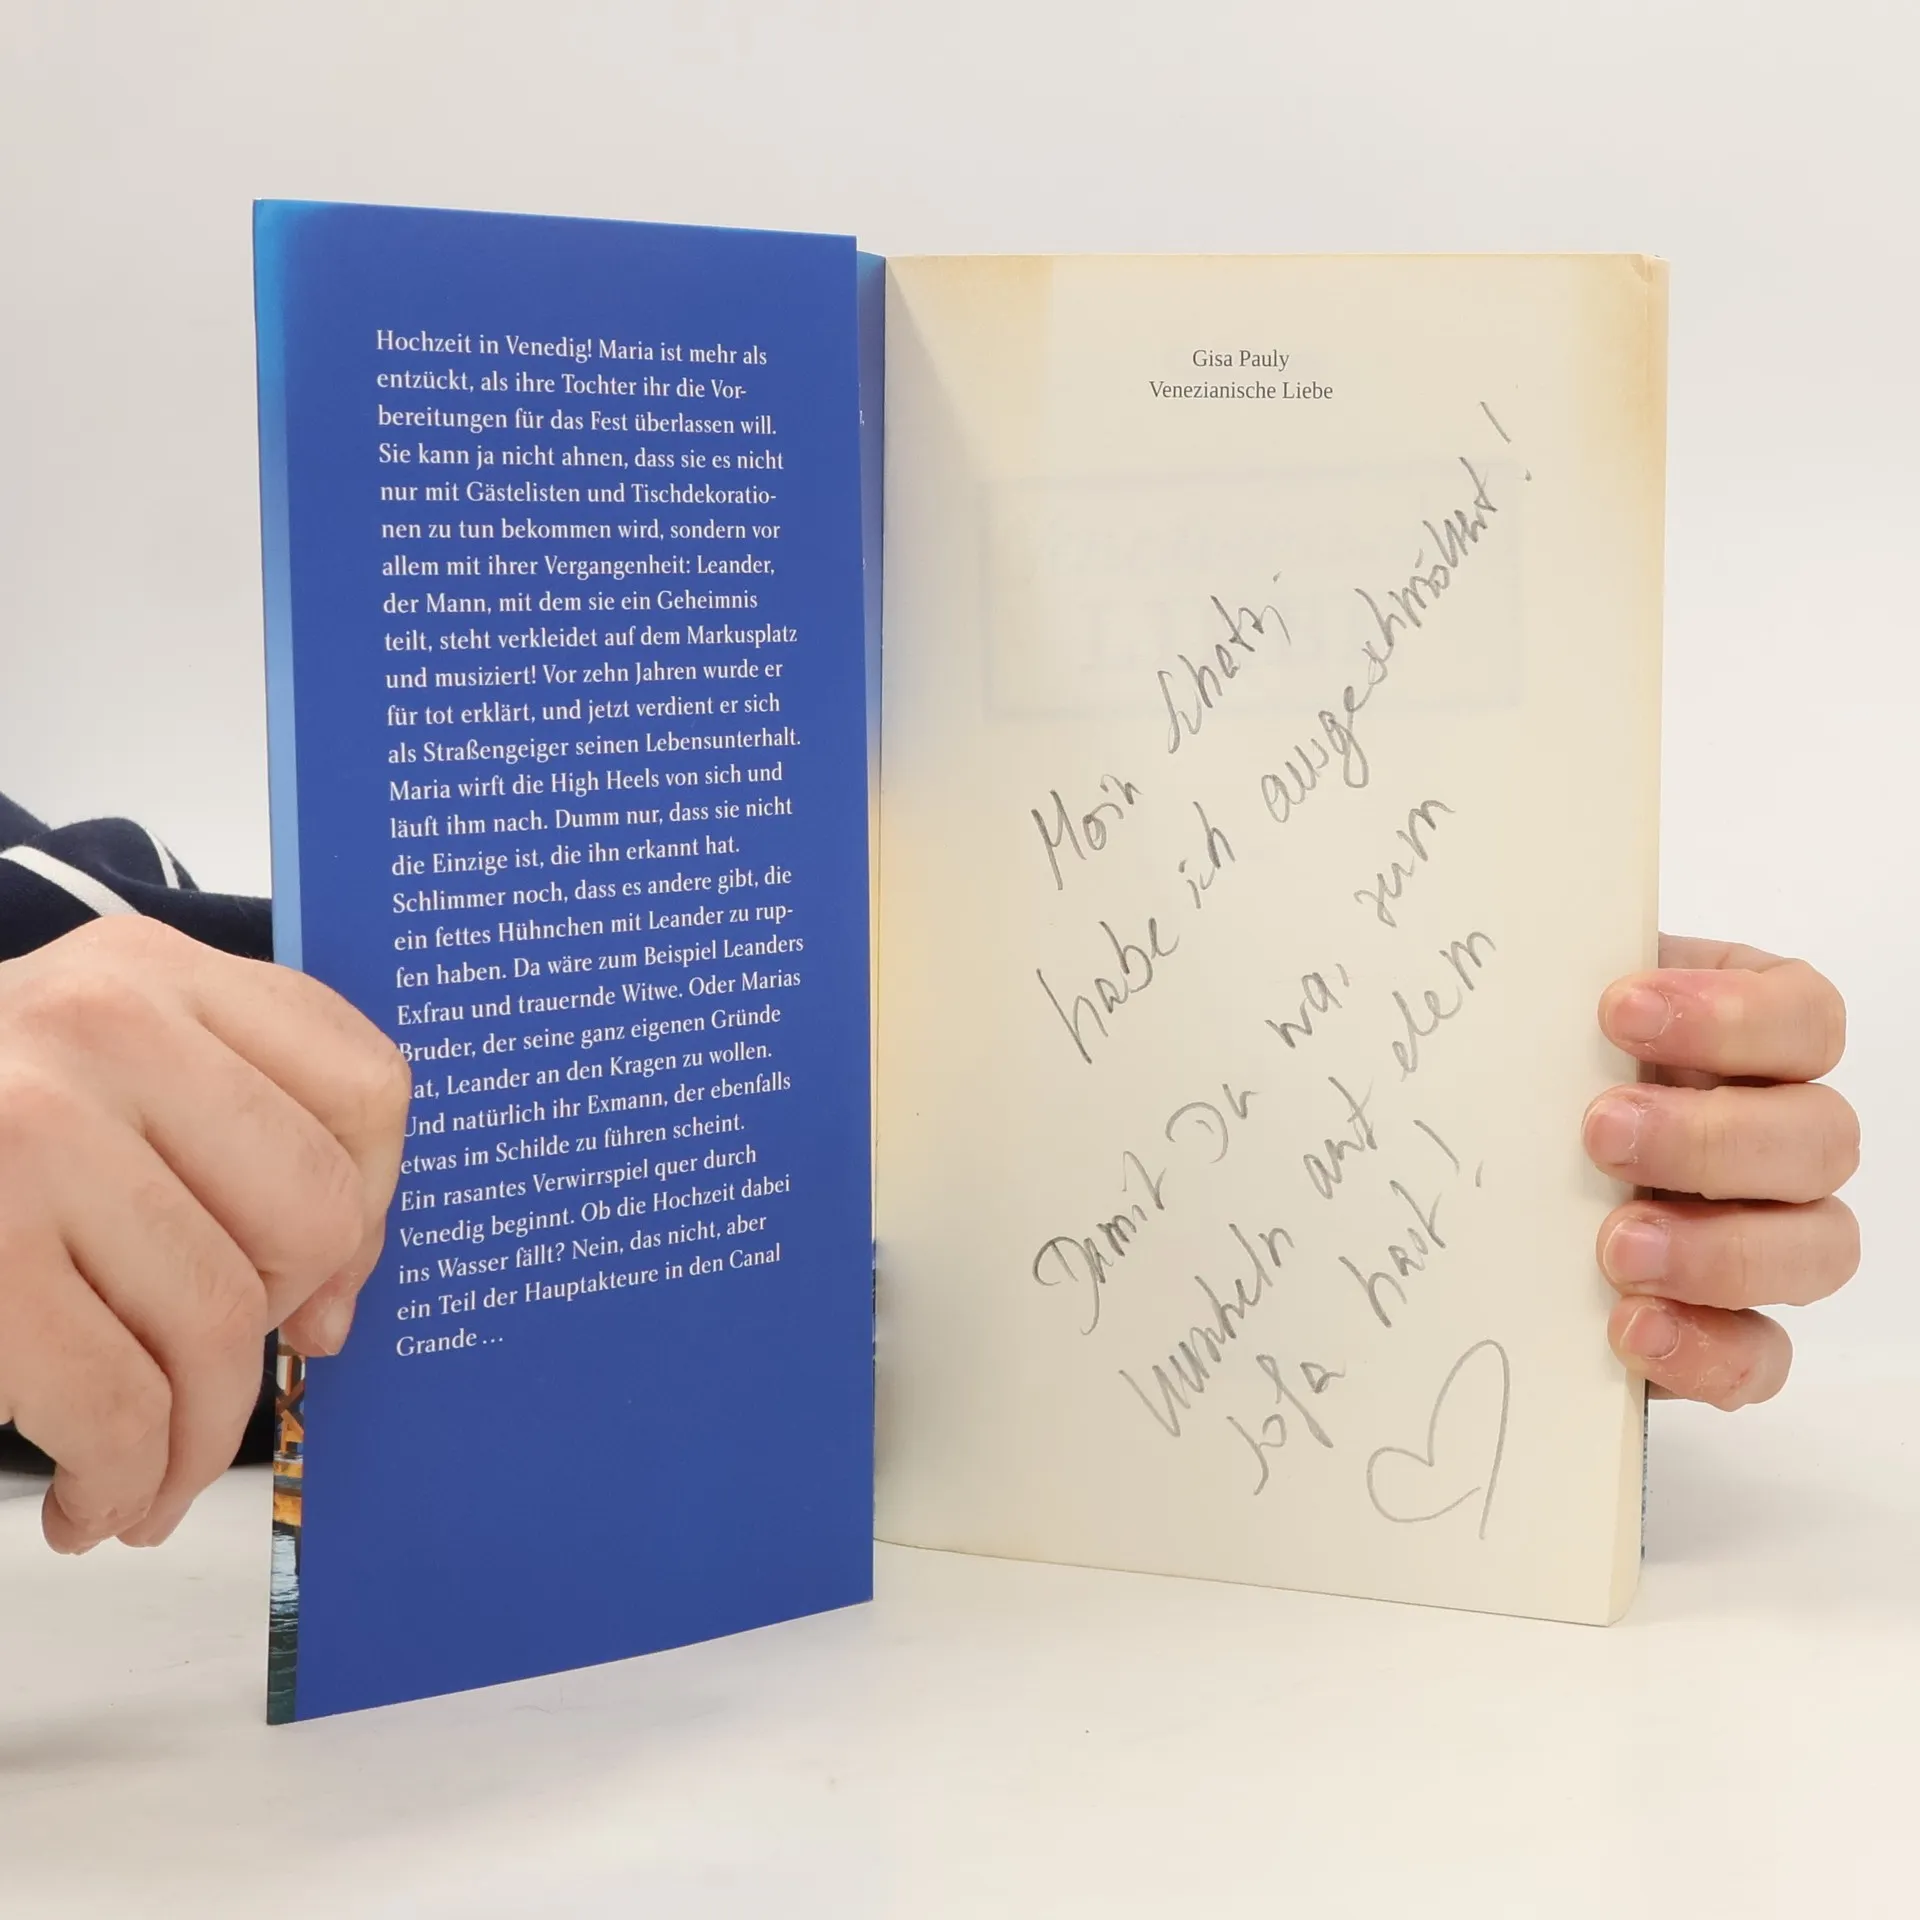 Hochzeit in Venedig! Maria ist mehr als
entzückt, als ihre Tochter ihr die Vor-
bereitungen für das Fest überlassen will.
Sie kann ja nicht ahnen, dass sie es nicht
nur mit Gästelisten und Tischdekoratio-
nen zu tun bekommen wird, sondern vor
allem mit ihrer Vergangenheit: Leander,
der Mann, mit dem sie ein Geheimnis
teilt, steht verkleidet auf dem Markusplatz
und musiziert! Vor zehn Jahren wurde er
für tot erklärt, und jetzt verdient er sich
als Straßengeiger seinen Lebensunterhalt.
Maria wirft die High Heels von sich und
läuft ihm nach. Dumm nur, dass sie nicht
die Einzige ist, die ihn erkannt hat.
Schlimmer noch, dass es andere gibt, die
ein fettes Hühnchen mit Leander zu rup-
fen haben. Da wäre zum Beispiel Leanders
Exfrau und trauernde Witwe. Oder Marias
Bruder, der seine ganz eigenen Gründe
hat, Leander an den Kragen zu wollen.
Und natürlich ihr Exmann, der ebenfalls
etwas im Schilde zu führen scheint.
Ein rasantes Verwirrspiel quer durch
Venedig beginnt. Ob die Hochzeit dabei
ins Wasser fällt? Nein, das nicht, aber
ein Teil der Hauptakteure in den Canal
Grande …
Gisa Pauly
Venezianische Liebe
Moin Schatzi
habe ich ausgeschmökert!
Damit Du was zum
kuscheln auf dem
Sofa hast!